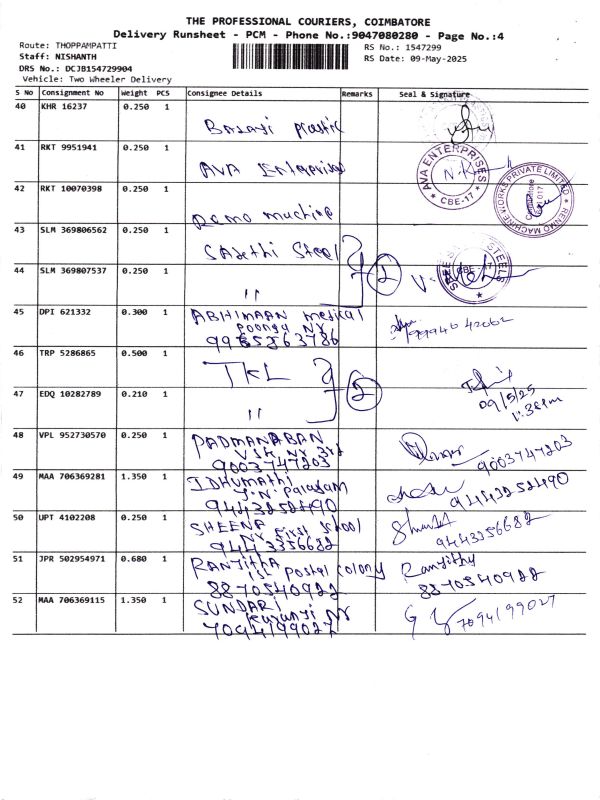 THE PROFESSIONAL COURIERS, COIMBATORE
Delivery Runsheet - PCM - Phone No.:9047080280 - Page No.:4
Route: THOPPAMPATTI
RS No.: 1547299
Staff: NISHANTH
RS Date: 09-May-2025
DRS No.: DCJB154729904
Vehicle: Two Wheeler Delivery
S No Consignment No Weight PCS Consignee Details Remarks Seal & Signature
40 KHR 16237 0.250 1
Balaji plastic
41 RKT 9951941 0.250 1
AVA Enterprises
AVA ENTERPRISES
* CBE-17 *
42 RKT 10070398 0.250 1
Remo machine
REMO MACHINE WORKS PRIVATE LIMITED
Coimbatore
641 017
43 SLM 369806562 0.250 1
Sakthi Steel
2
STEELS
CBE - 17
44 SLM 369807537 0.250 1
"
45 DPI 621332 0.300 1
ABHIMAAN medical
Poonga Nr
9965263786
9994042062
46 TRP 5286865 0.500 1
TKL
2
47 EDQ 10282789 0.210 1
"
09/5/25
48 VPL 952730570 0.250 1
PADMANABAN
VSK Nr 3rd
9003747203
9003747203
49 MAA 706369281 1.350 1
IDHUMATHI
J.N. Palayam
9443252490
9443252490
50 UPT 4102208 0.250 1
SHEENA
Nr First School
9443356682
9443356682
51 JPR 502954971 0.680 1
RANJITHA
1st Postal colony
8870540922
Ranjitha
8870540922
52 MAA 706369115 1.350 1
SUNDARI
Gurunji Nr
7094199027
7094199027